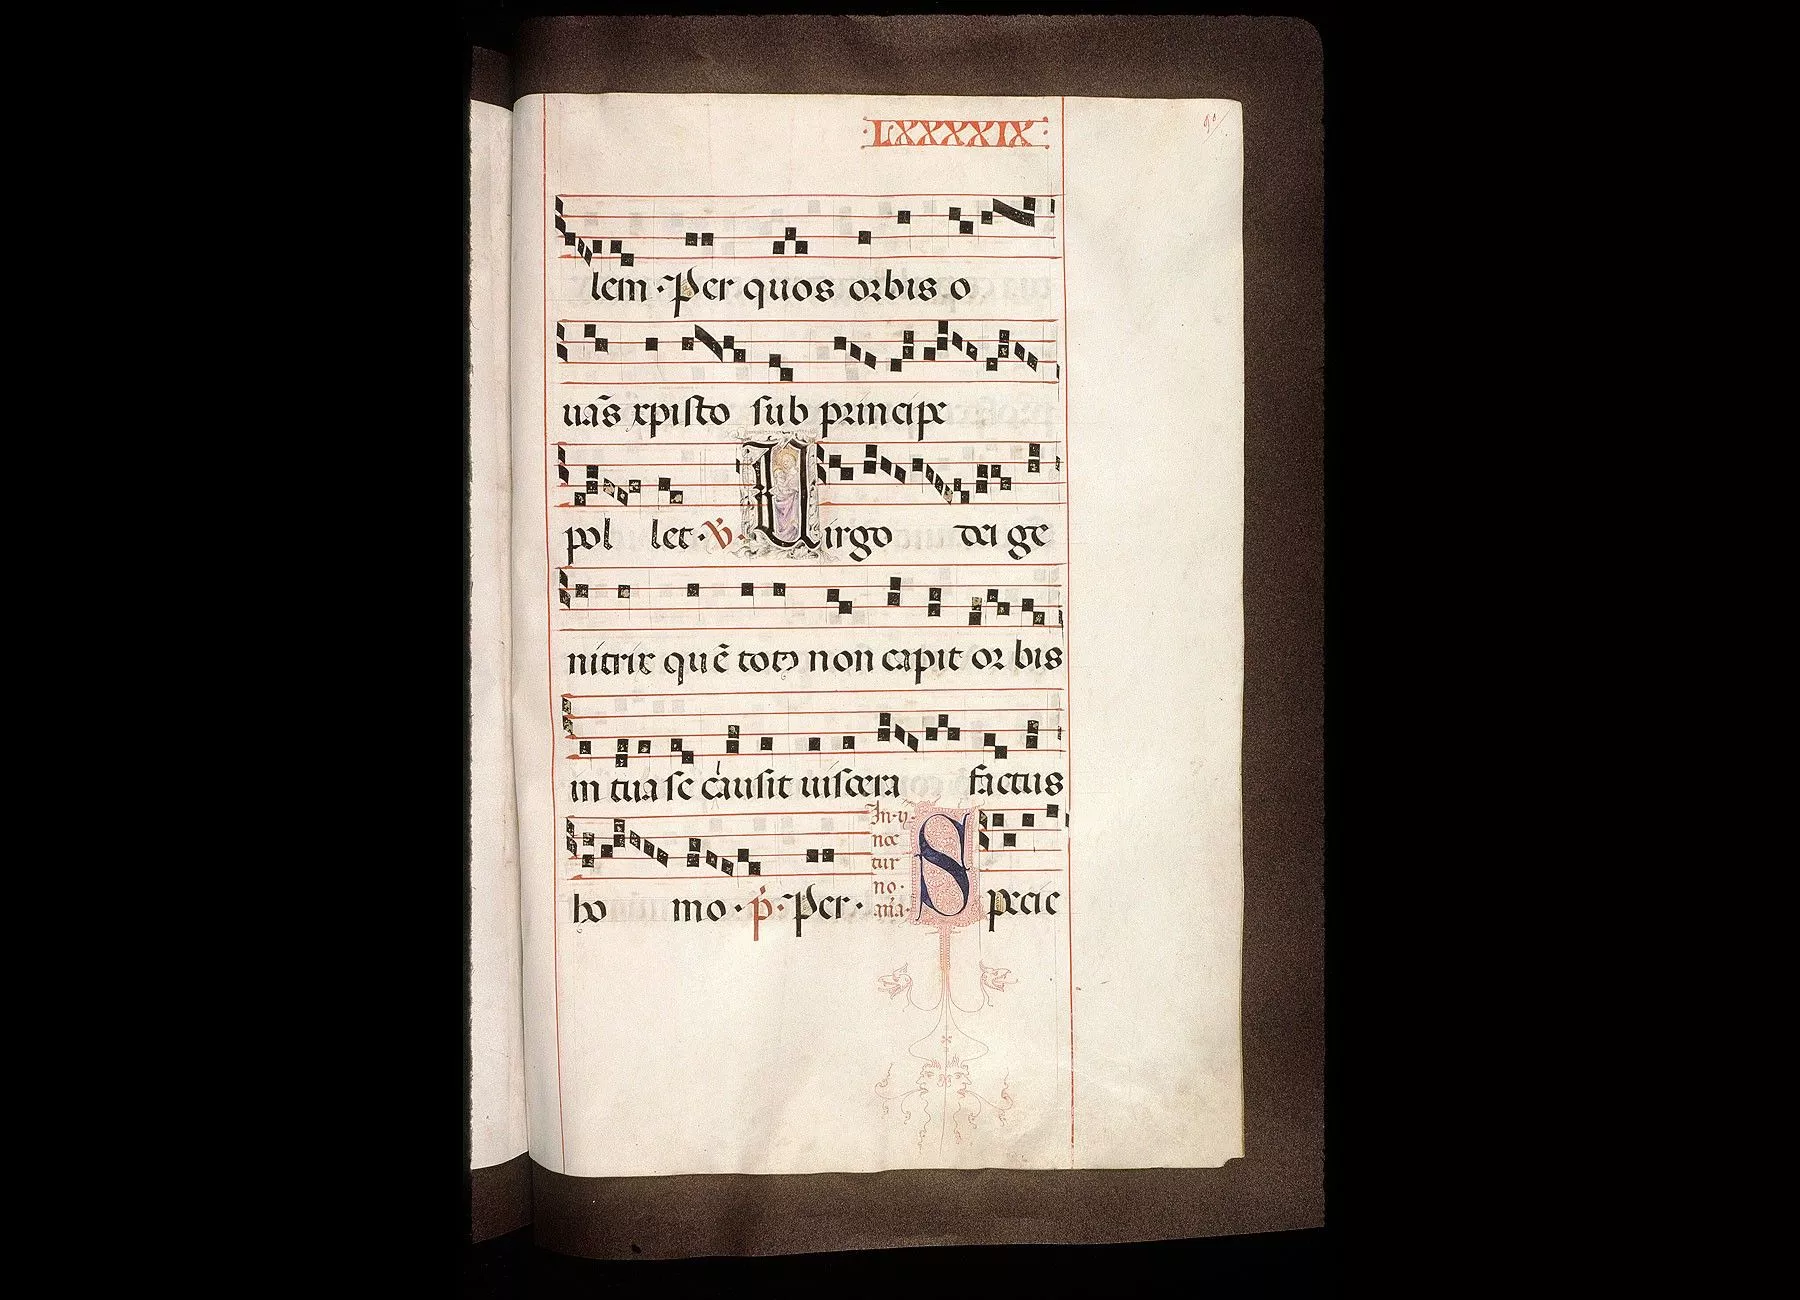 ·LXXXXIX·
lem · Per quos orbis o
uãs xpisto sub principe
pol let · ℣ · Uirgo dei ge
nitrix quē toto non capit or bis
in tua se clausit uiscera factus
In ·ij·
noc
tur
no·
aña·
ho mo · p̃ · Per · S pecie